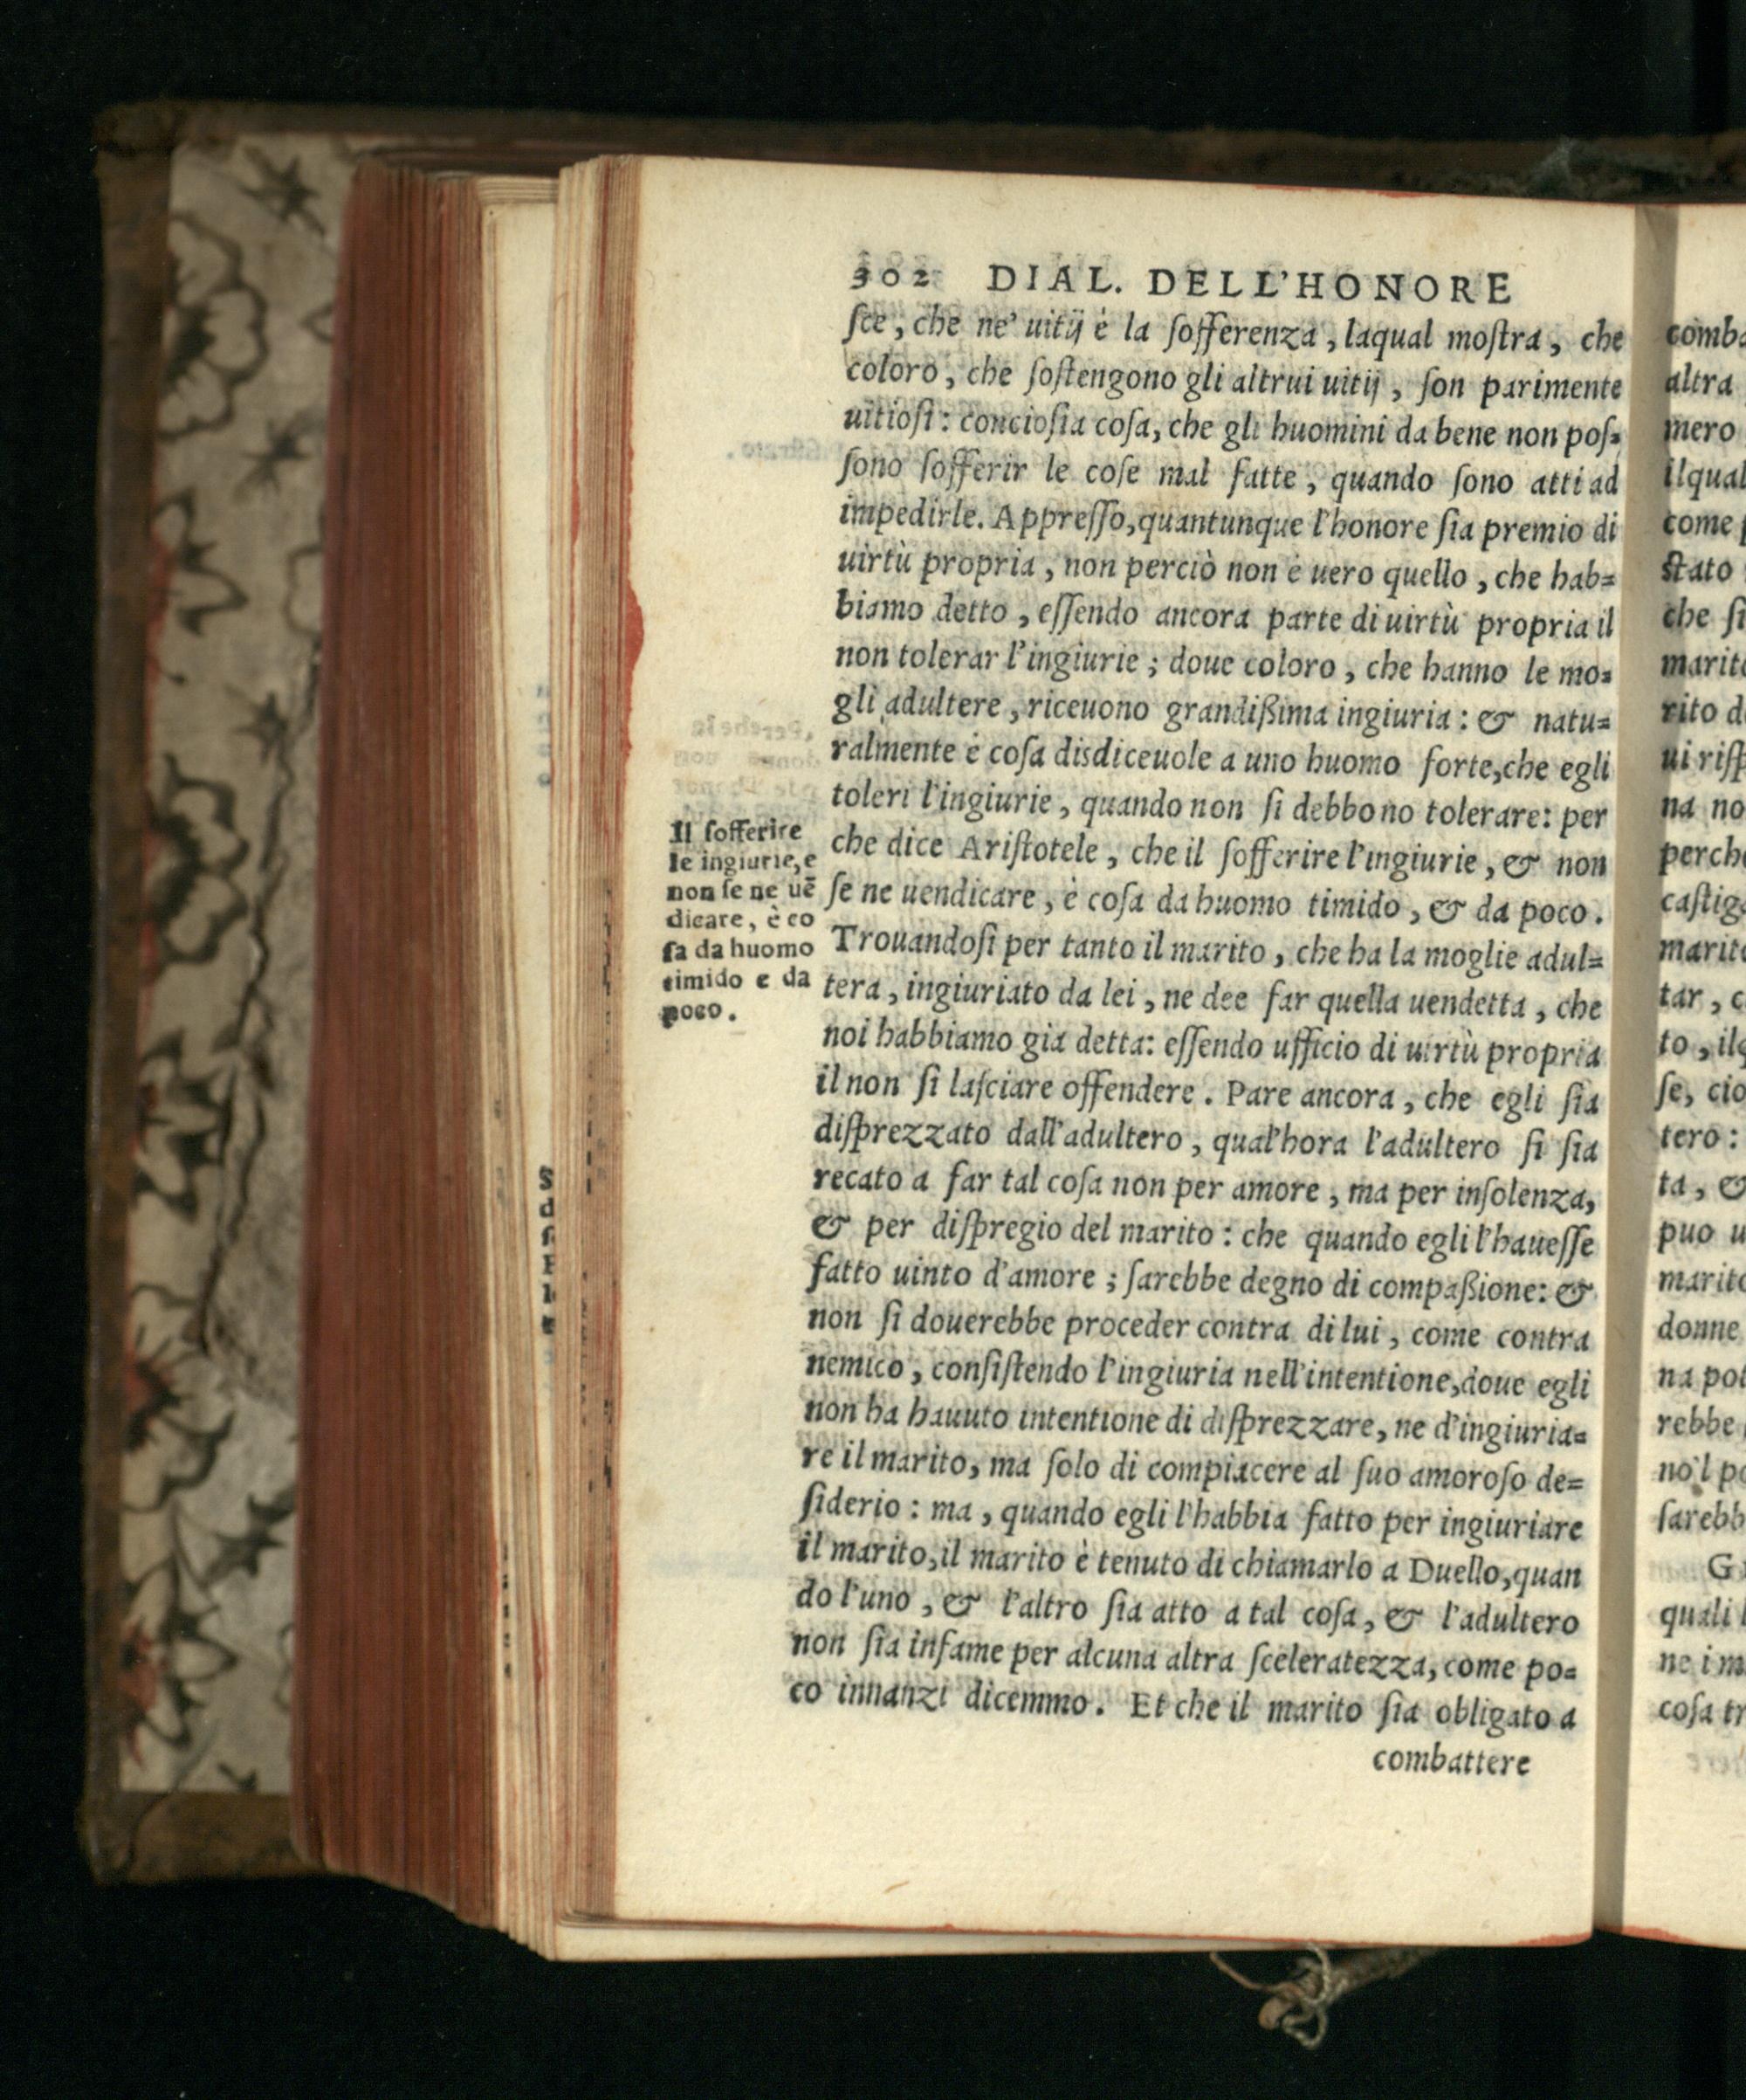 302 DIAL. DELL'HONORE
ſce, che ne' uitij è la ſofferenza, laqual moſtra, che
coloro, che ſoſtengono gli altrui uitij, ſon parimente
uitioſi: concioſia coſa, che gli huomini da bene non poſ=
ſono ſofferir le coſe mal fatte, quando ſono atti ad
impedirle. Appreſſo, quantunque l'honore ſia premio di
uirtù propria, non perciò non è uero quello, che hab=
biamo detto, eſſendo ancora parte di uirtù propria il
non tolerar l'ingiurie; doue coloro, che hanno le mo=
gli adultere, riceuono grandißima ingiuria: & natu=
ralmente è coſa disdiceuole a uno huomo forte, che egli
toleri l'ingiurie, quando non ſi debbono tolerare: per
che dice Ariſtotele, che il ſofferire l'ingiurie, & non
ſe ne uendicare, è coſa da huomo timido, & da poco.
Trouandoſi per tanto il marito, che ha la moglie adul=
tera, ingiuriato da lei, ne dee far quella uendetta, che
noi habbiamo gia detta: eſſendo ufficio di uirtù propria
il non ſi laſciare offendere. Pare ancora, che egli ſia
diſprezzato dall'adultero, qual'hora l'adultero ſi ſia
recato a far tal coſa non per amore, ma per inſolenza,
& per diſpregio del marito: che quando egli l'haueſſe
fatto uinto d'amore; ſarebbe degno di compaßione: &
non ſi douerebbe proceder contra di lui, come contra
nemico, conſiſtendo l'ingiuria nell'intentione, doue egli
non ha hauuto intentione di diſprezzare, ne d'ingiuria=
re il marito, ma ſolo di compiacere al ſuo amoroſo de=
ſiderio: ma, quando egli l'habbia fatto per ingiuriare
il marito, il marito è tenuto di chiamarlo a Duello, quan
do l'uno, & l'altro ſia atto a tal coſa, & l'adultero
non ſia infame per alcuna altra ſceleratezza, come po=
co innanzi dicemmo. Et che il marito ſia obligato a
combattere
Il ſofferire
le ingiurie, e
non ſe ne uē
dicare, è co
ſa da huomo
timido e da
poco.
comba
altra
mero
ilqual
come p
ſtato
che ſi
marito
rito d
ui riſp
na no
perche
caſtiga
marito
tar, c
to, ilq
ſe, cio
tero:
ta, &
puo u
marito
donne
na pot
rebbe
no'l po
ſarebb
quali l
ne i m
coſa tr